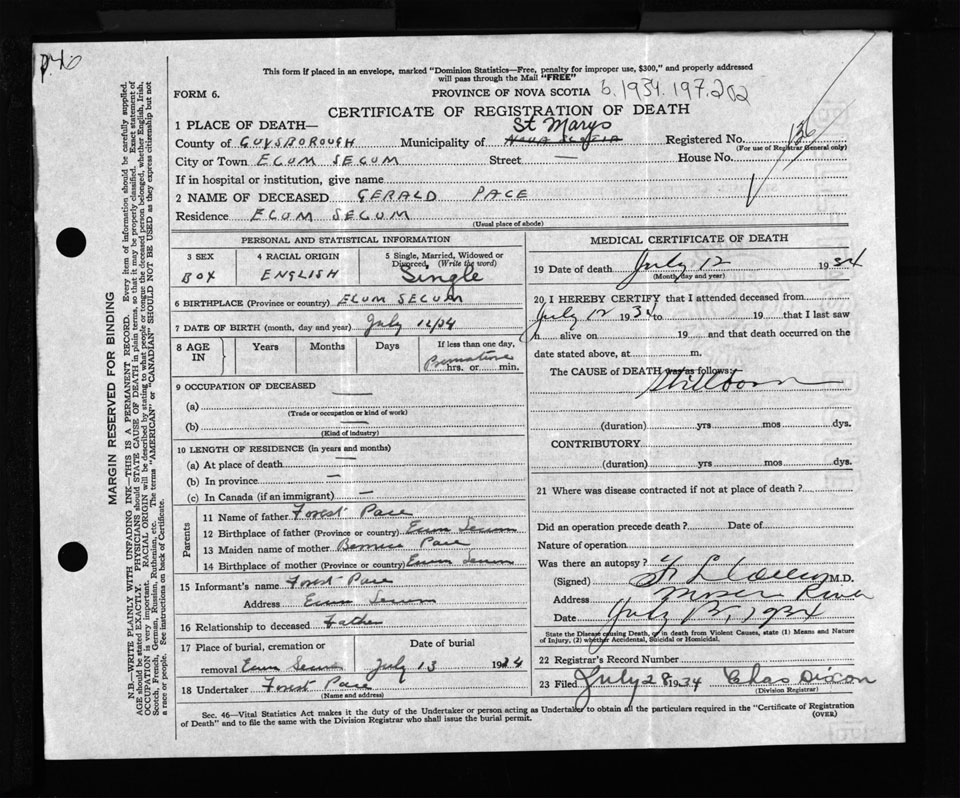 This form if placed in an envelope, marked "Dominion Statistics—Free, penalty for improper use, $300," and properly addressed
will pass through the Mail "FREE"
FORM 6. PROVINCE OF NOVA SCOTIA 6.1934.197.202
CERTIFICATE OF REGISTRATION OF DEATH
1 PLACE OF DEATH— St Marys
County of GUYSBOROUGH Municipality of NOVA SCOTIA Registered No. 136
(For use of Registrar General only)
City or Town ECUM SECUM Street — House No.
If in hospital or institution, give name
2 NAME OF DECEASED GERALD PACE
Residence ECUM SECUM
(Usual place of abode)
PERSONAL AND STATISTICAL INFORMATION
3 SEX 4 RACIAL ORIGIN 5 Single, Married, Widowed or
Divorced, (Write the word)
BOY ENGLISH Single
6 BIRTHPLACE (Province or country) ECUM SECUM
7 DATE OF BIRTH (month, day and year) July 12/34
8 AGE IN Years Months Days If less than one day,
Premature
hrs. or min.
9 OCCUPATION OF DECEASED
(a) —
(Trade or occupation or kind of work)
(b) —
(Kind of industry)
10 LENGTH OF RESIDENCE (in years and months)
(a) At place of death —
(b) In province —
(c) In Canada (if an immigrant) —
Parents
11 Name of father Forest Pace
12 Birthplace of father (Province or country) Ecum Secum
13 Maiden name of mother Pace
14 Birthplace of mother (Province or country) Ecum Secum
15 Informant's name Forest Pace
Address Ecum Secum
16 Relationship to deceased Father
17 Place of burial, cremation or Date of burial
removal Ecum Secum July 13 1934
18 Undertaker Forest Pace
(Name and address)
MEDICAL CERTIFICATE OF DEATH
19 Date of death July 12 1934
(Month, day and year)
20 I HEREBY CERTIFY that I attended deceased from
July 12 1934 to 19 that I last saw
h alive on 19 and that death occurred on the
date stated above, at m.
The CAUSE of DEATH was as follows:
Stillborn
(duration) yrs mos dys.
CONTRIBUTORY
(duration) yrs mos dys.
21 Where was disease contracted if not at place of death?
Did an operation precede death? Date of
Nature of operation
Was there an autopsy?
(Signed) M.D.
Address Moser River
Date July 13, 1934
State the Disease causing Death, or in death from Violent Causes, state (1) Means and Nature
of Injury, (2) whether Accidental, Suicidal or Homicidal.
22 Registrar's Record Number
23 Filed July 28 1934 Chas Dixon
(Division Registrar)
Sec. 46—Vital Statistics Act makes it the duty of the Undertaker or person acting as Undertaker to obtain all the particulars required in the "Certificate of Registration
of Death" and to file the same with the Division Registrar who shall issue the burial permit. (OVER)
MARGIN RESERVED FOR BINDING
N.B.—WRITE PLAINLY WITH UNFADING INK—THIS IS A PERMANENT RECORD. Every item of information should be carefully supplied.
AGE should be stated EXACTLY. PHYSICIANS should STATE CAUSE OF DEATH in plain terms, so that it may be properly classified. Exact statement of
OCCUPATION is very important. RACIAL ORIGIN will be described by stating to what people or tongue the deceased person belonged, whether English, Irish,
Scotch, French, German, Russian, Ruthenian, etc. The terms "AMERICAN" or "CANADIAN" SHOULD NOT BE USED as they express citizenship but not
a race or people. See instructions on back of Certificate.